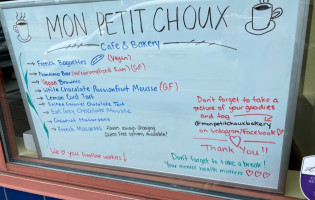 MON PETIT CHOUX
Cafe & Bakery
French Baguettes (Vegan)
Nanaimo Bar (w/caramelized rum) (GF)
Vegan Brownies
White Chocolate Passionfruit Mousse (GF)
Lemon Curd Tart
Salted Caramel Chocolate Tart
Earl Grey Chocolate Mousse
Coconut Macaroons
French Macarons
Flavors always changing
Gluten free options available!
We ♡ your frontline workers ↓
Don't forget to take a
picture of your goodies
and tag
@monpetitchouxbakery
on Instagram/Facebook ♡
Thank you!!
Don't forget to take a break!
Your mental health matters ♡♡♡